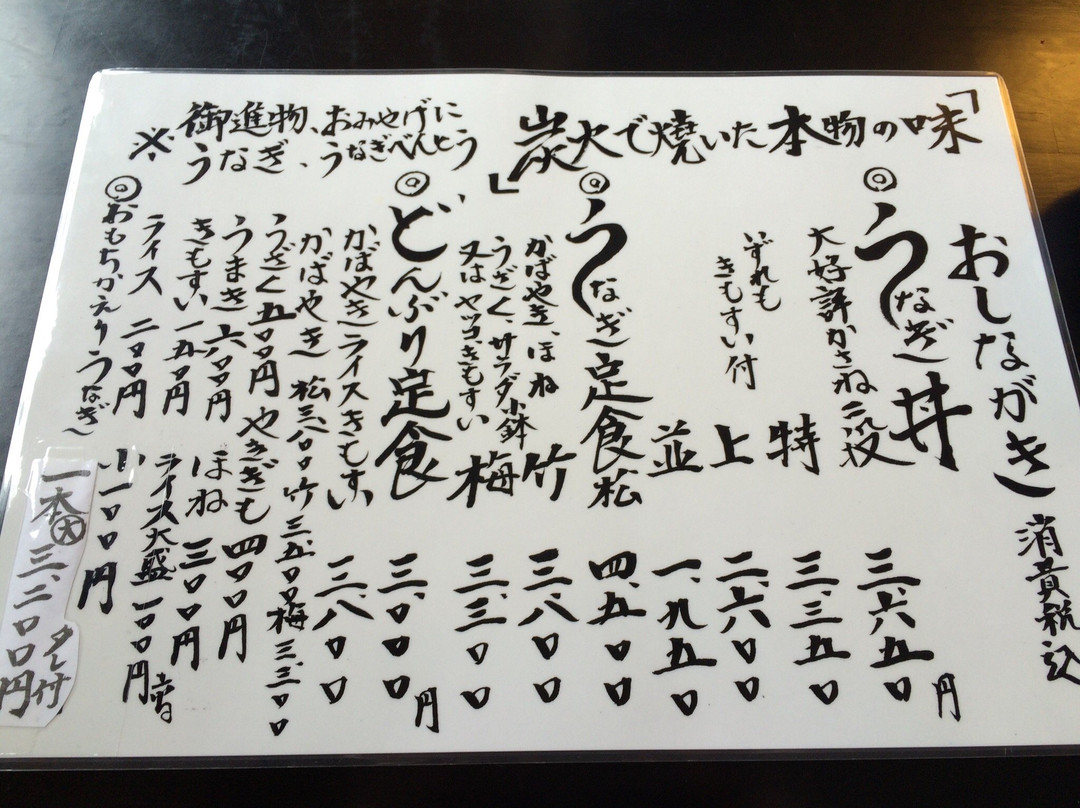 「炭火で焼いた本物の味」
おしながき 消費税込
◎うなぎ丼
大好評かさね二段 三、六五〇円
特 三、三五〇
上 二、六〇〇
並 一、九五〇
いずれも
きもすい付
◎うなぎ定食 松 四、五〇〇
竹 三、八〇〇
梅 三、三〇〇
かばやき、ほね
うざく、サラダ小鉢
又はヤッコ、きもすい
◎どんぶり定食 三、〇〇〇円
かばやきライスきもすい 三、八〇〇
かばやき 松三、八〇〇 竹三、五〇〇 梅三、三〇〇
うざく 五〇〇円 やききも 四〇〇円
うまき 六〇〇円 ほね 三〇〇円
きもすい 一五〇円 ライス大盛 一〇〇円増
ライス 二〇〇円
※御進物、おみやげに
うなぎ、うなぎべんとう
◎おもちかえりうなぎ 小一〇〇円
一本大 三、二〇〇円
タレ付